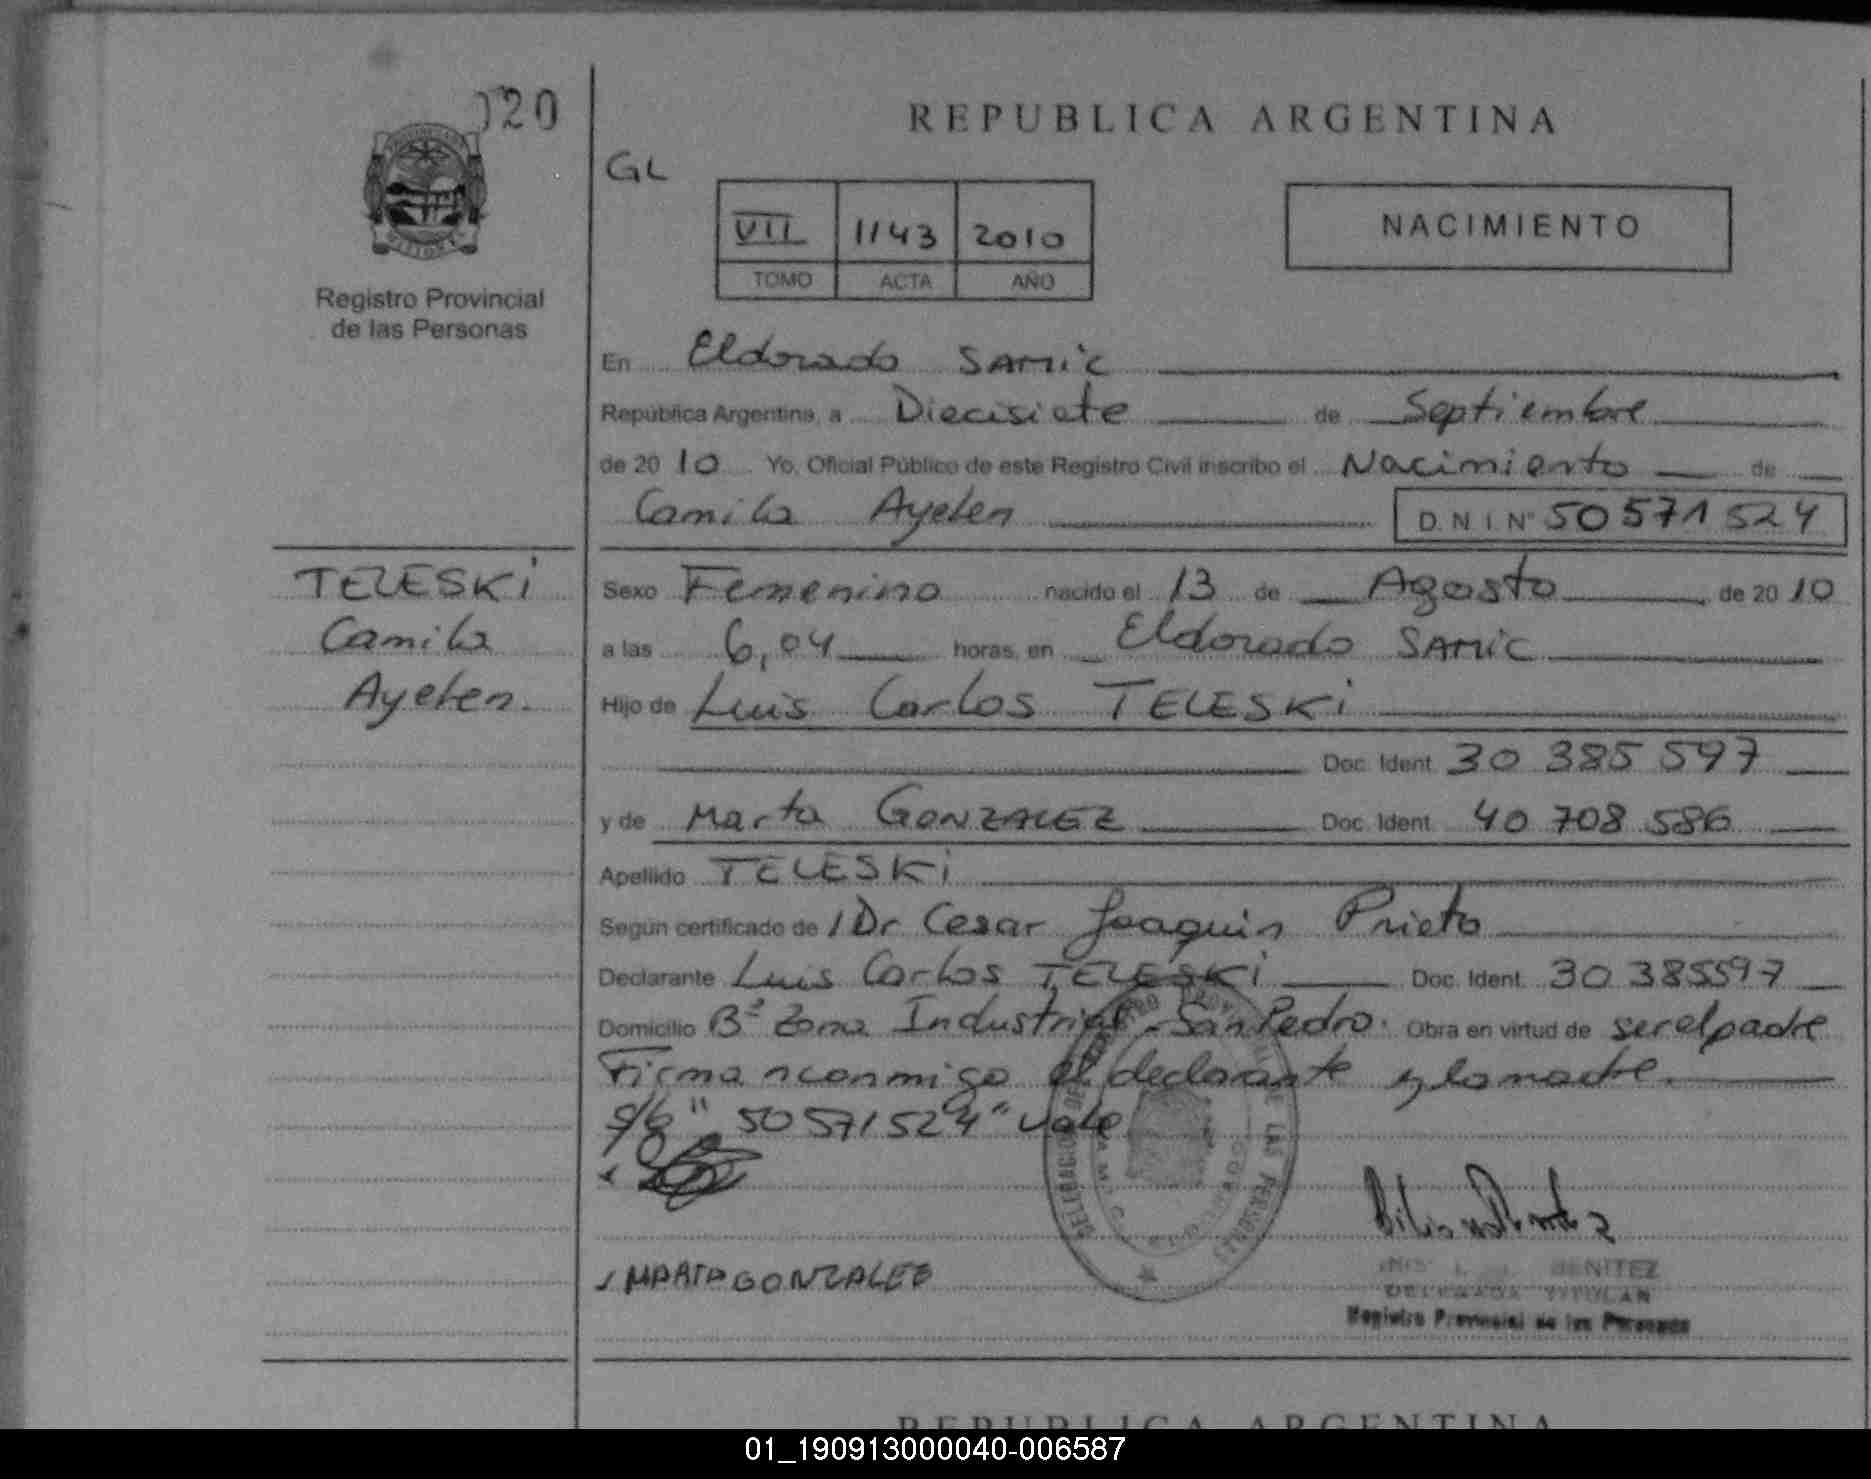 020
REPUBLICA ARGENTINA
GL
VII 1143 2010
TOMO ACTA AÑO
NACIMIENTO
MISIONES
Registro Provincial
de las Personas
En Eldorado SAMiC
República Argentina, a Diecisiete de Septiembre
de 20 10 Yo, Oficial Público de este Registro Civil inscribo el Nacimiento de
Camila Ayelen D.N.I.Nº 50 571 524
TELESKi
Camila
Ayelen.
Sexo Femenino nacido el 13 de Agosto de 20 10
a las 6,04 horas, en Eldorado SAMiC
Hijo de Luis Carlos TELESKi
Doc. Ident. 30 385 597
y de Marta GONZALEZ Doc. Ident. 40 708 586
Apellido TELESKi
Según certificado de / Dr Cesar Joaquin Prieto
Declarante Luis Carlos TELESKi Doc. Ident. 30 385597
Domicilio Bº Zona Industrial - San Pedro. Obra en virtud de ser el padre
Firma nconmigo el declarante y la madre.
s/b " 50 571 524 " vale
MARTA GONZALEZ
DELEGACION DEL REGISTRO PROVINCIAL DE LAS PERSONAS
ELDORADO
BENITEZ
DELEGADA TITULAR
Registro Provincial de las Personas
REPUBLICA ARGENTINA
01_190913000040-006587